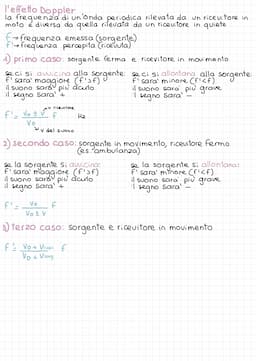 l'effetto Doppler
la frequenza di un'onda periodica rilevata da un ricevitore in
moto è diversa da quella rilevata da un ricevitore in quiete
f → frequenza emessa (sorgente)
f' → frequenza percepita (ricevuta)
1) primo caso: sorgente ferma e ricevitore in movimento
se ci si avvicina alla sorgente:
f' sarà maggiore (f'>f)
il suono sarà più acuto
il segno sarà +
se ci si allontana alla sorgente:
f' sarà minore (f'<f)
il suono sarà più grave
il segno sarà -
f' = (v₀ ± v / v₀) f Hz
v ricevitore
v del suono
2) secondo caso: sorgente in movimento, ricevitore fermo
(es. ambulanza)
se la sorgente si avvicina:
f' sarà maggiore (f'>f)
il suono sarà più acuto
il segno sarà -
se la sorgente si allontana:
f' sarà minore (f'<f)
il suono sarà più grave
il segno sarà
f' = (v₀ / v₀ ± v) f
3) terzo caso: sorgente e ricevitore in movimento